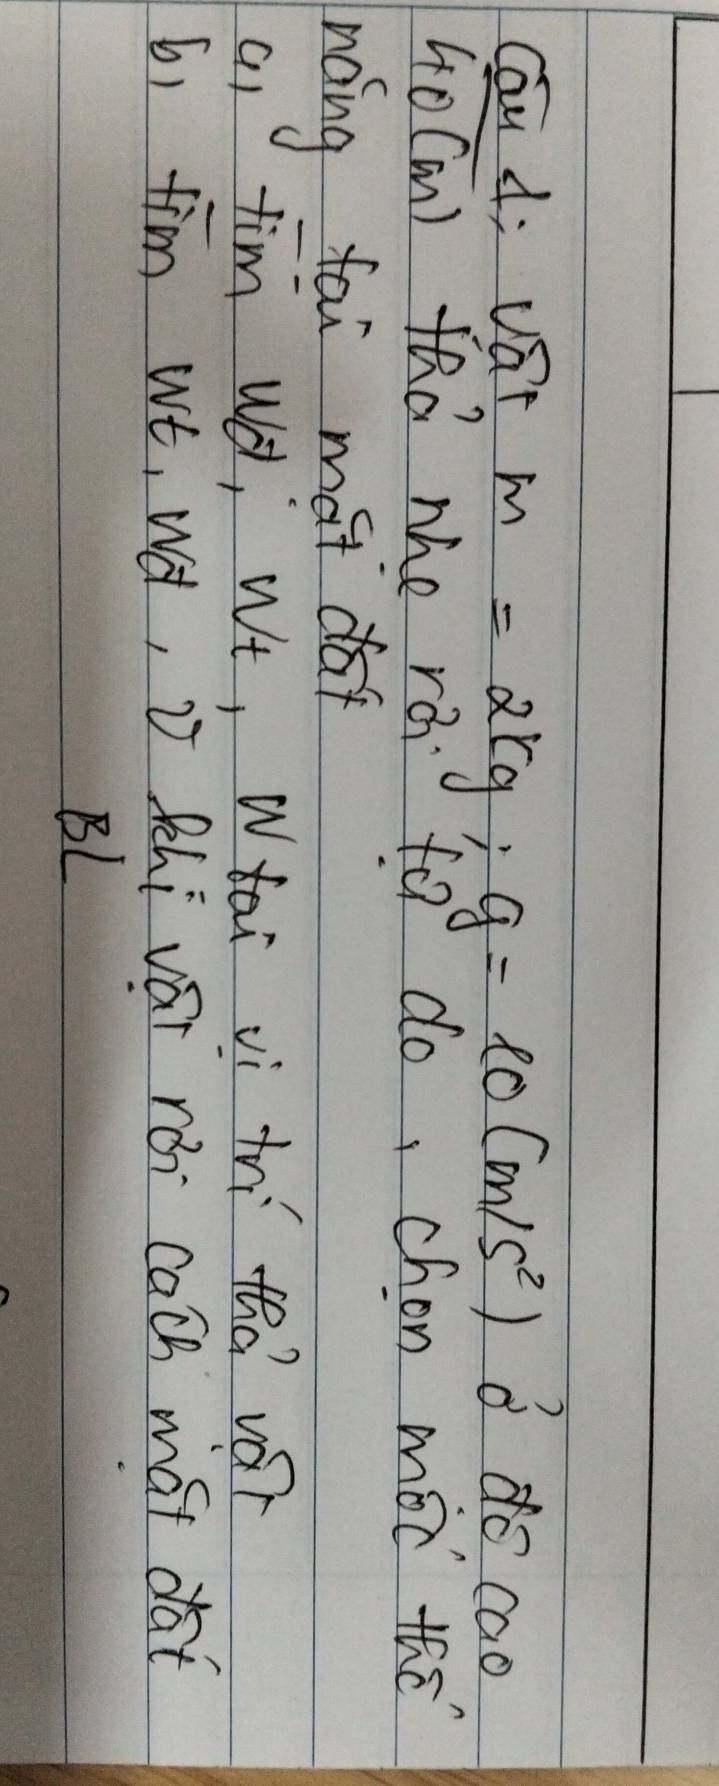 Câu 1: vật m = 2kg; g = 10 (m/s²) ở độ cao
40 (m) thả nhẹ rơi tự do, chọn mốc thế
năng tại mặt đất
a, tìm Wđ, Wt, W tại vị trí thả vật
b, tìm Wt, Wđ, v khi vật rơi cách mặt đất
BL